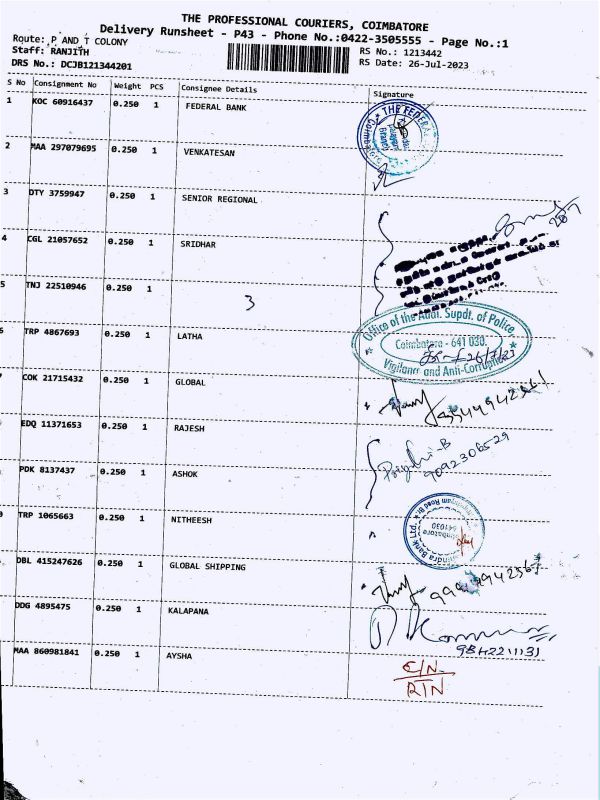 THE PROFESSIONAL COURIERS, COIMBATORE
Delivery Runsheet - P43 - Phone No.:0422-3505555 - Page No.:1
Route: P AND T COLONY
RS No.: 1213442
Staff: RANJITH
RS Date: 26-Jul-2023
DRS No.: DCJB121344201
S No Consignment No Weight PCS Consignee Details Signature
1 KOC 60916437 0.250 1 FEDERAL BANK
THE FEDERAL
2 MAA 297079695 0.250 1 VENKATESAN
3 DTY 3759947 0.250 1 SENIOR REGIONAL
4 CGL 21057652 0.250 1 SRIDHAR
5 TNJ 22510946 0.250 1
3
Office of the Addl. Supdt. of Police,
Coimbatore - 641 030.
26/7/23
Vigilance and Anti-Corruption
6 TRP 4867693 0.250 1 LATHA
COK 21715432 0.250 1 GLOBAL
EDQ 11371653 0.250 1 RAJESH
9092306529
PDK 8137437 0.250 1 ASHOK
TRP 1065663 0.250 1 NITHEESH
Bank Ltd.
Coimbatore
641030
DBL 415247626 0.250 1 GLOBAL SHIPPING
DDG 4895475 0.250 1 KALAPANA
MAA 860981841 0.250 1 AYSHA
C/N
RTN